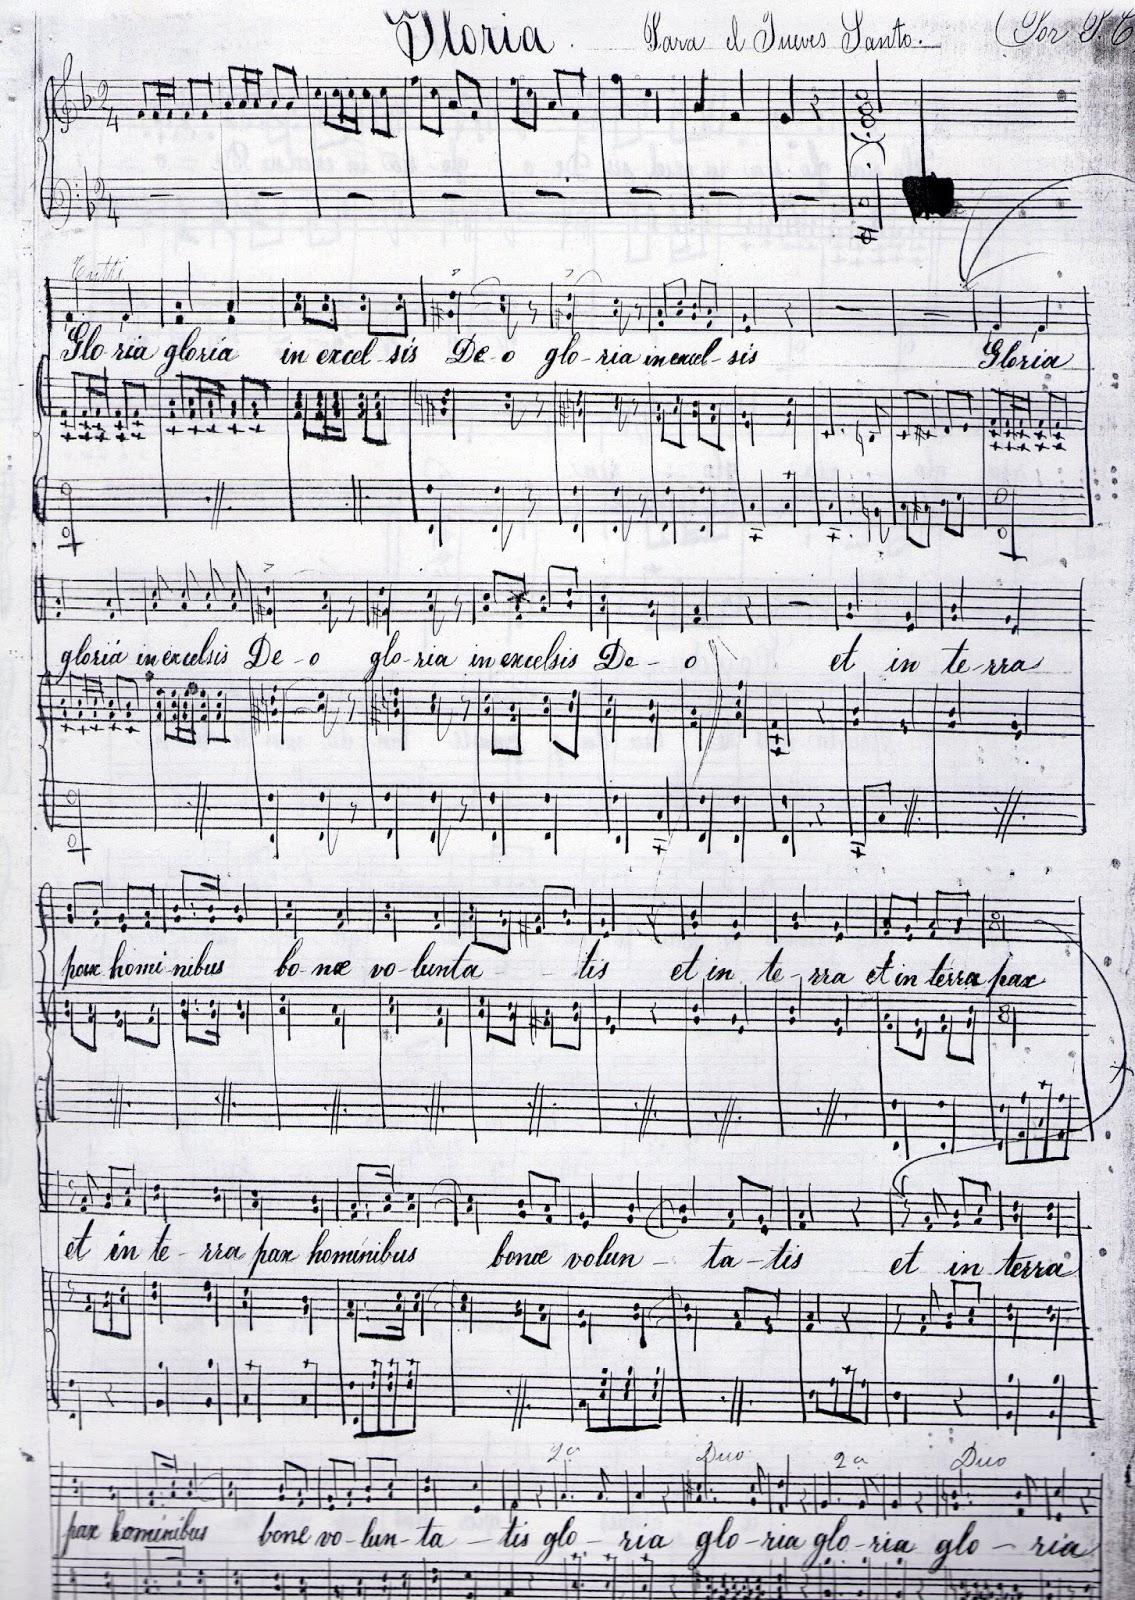 Gloria. Para el Jueves Santo. (Por
2 4
2 4
Tutti
Glo-ria gloria in excel-sis De-o glo-ria in excel-sis Gloria
gloria in excelsis De-o glo-ria in excelsis De-o et in te-rra
pax homi-nibus bo-næ vo-lunta-tis et in te-rra et in terra pax
et in te-rra pax hominibus bonæ volun-ta-tis et in terra
2ª Duo 2ª Duo
pax hominibus bone vo-lun-ta-tis glo-ria glo-ria glo-ria glo-ria